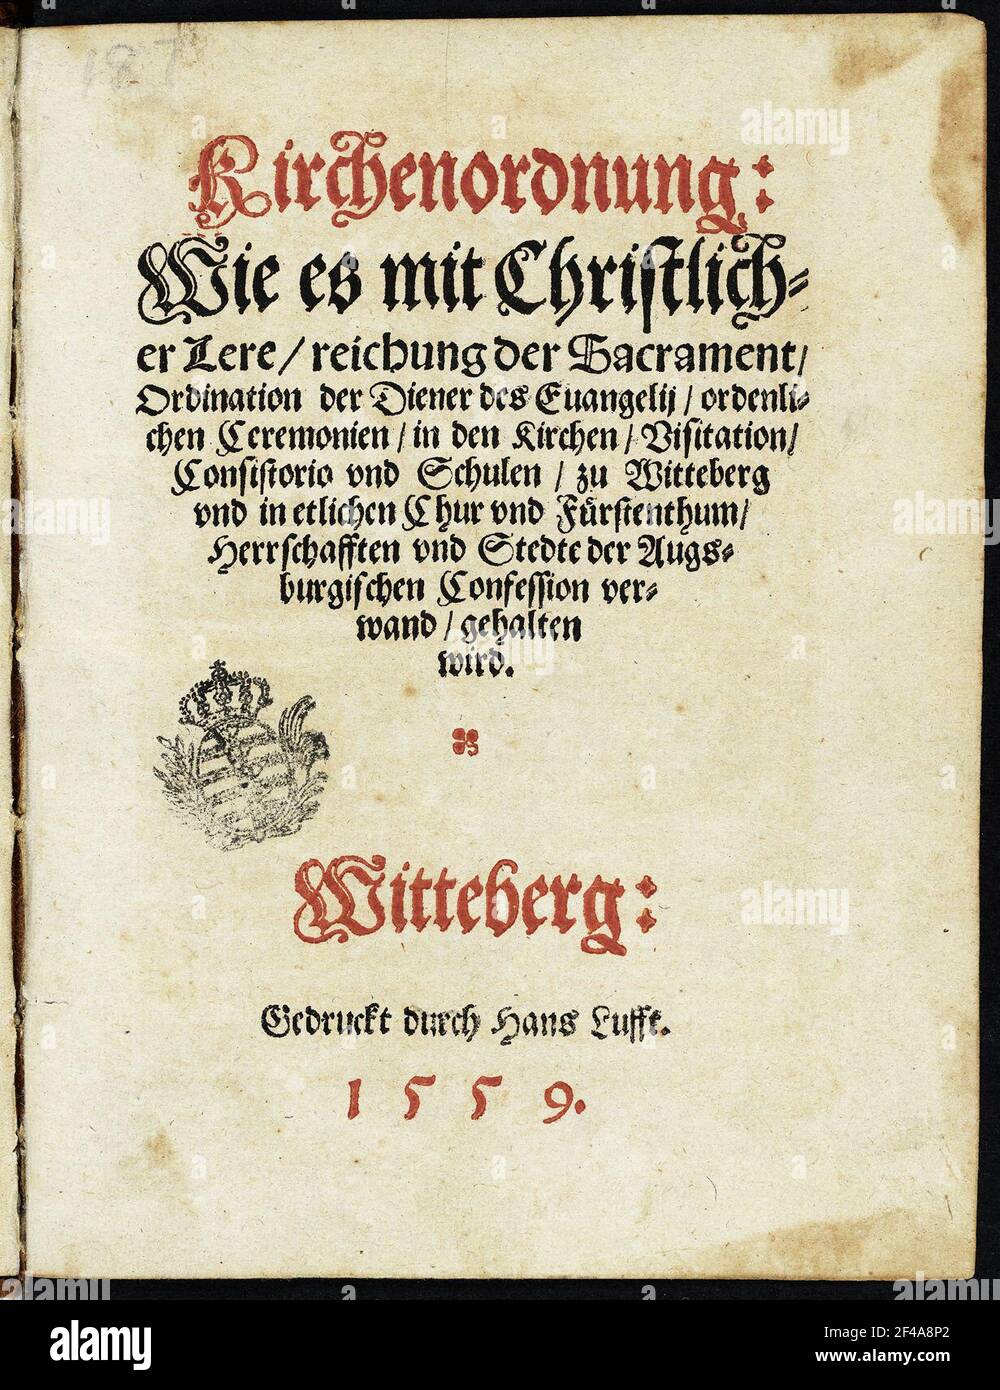 187
Kirchenordnung:
Wie es mit Christlich-
er Lere / reichung der Sacrament /
Ordination der Diener des Euangelij / ordenli-
chen Ceremonien / in den Kirchen / Visitation /
Consistorio vnd Schulen / zu Witteberg
vnd in etlichen Chur vnd Fürstenthum /
Herrschafften vnd Stedte der Augs-
burgischen Confession ver-
wand / gehalten
wird.
Witteberg:
Gedruckt durch Hans Lufft.
1559.
alamy
Image ID: 2F4A8P2
www.alamy.com